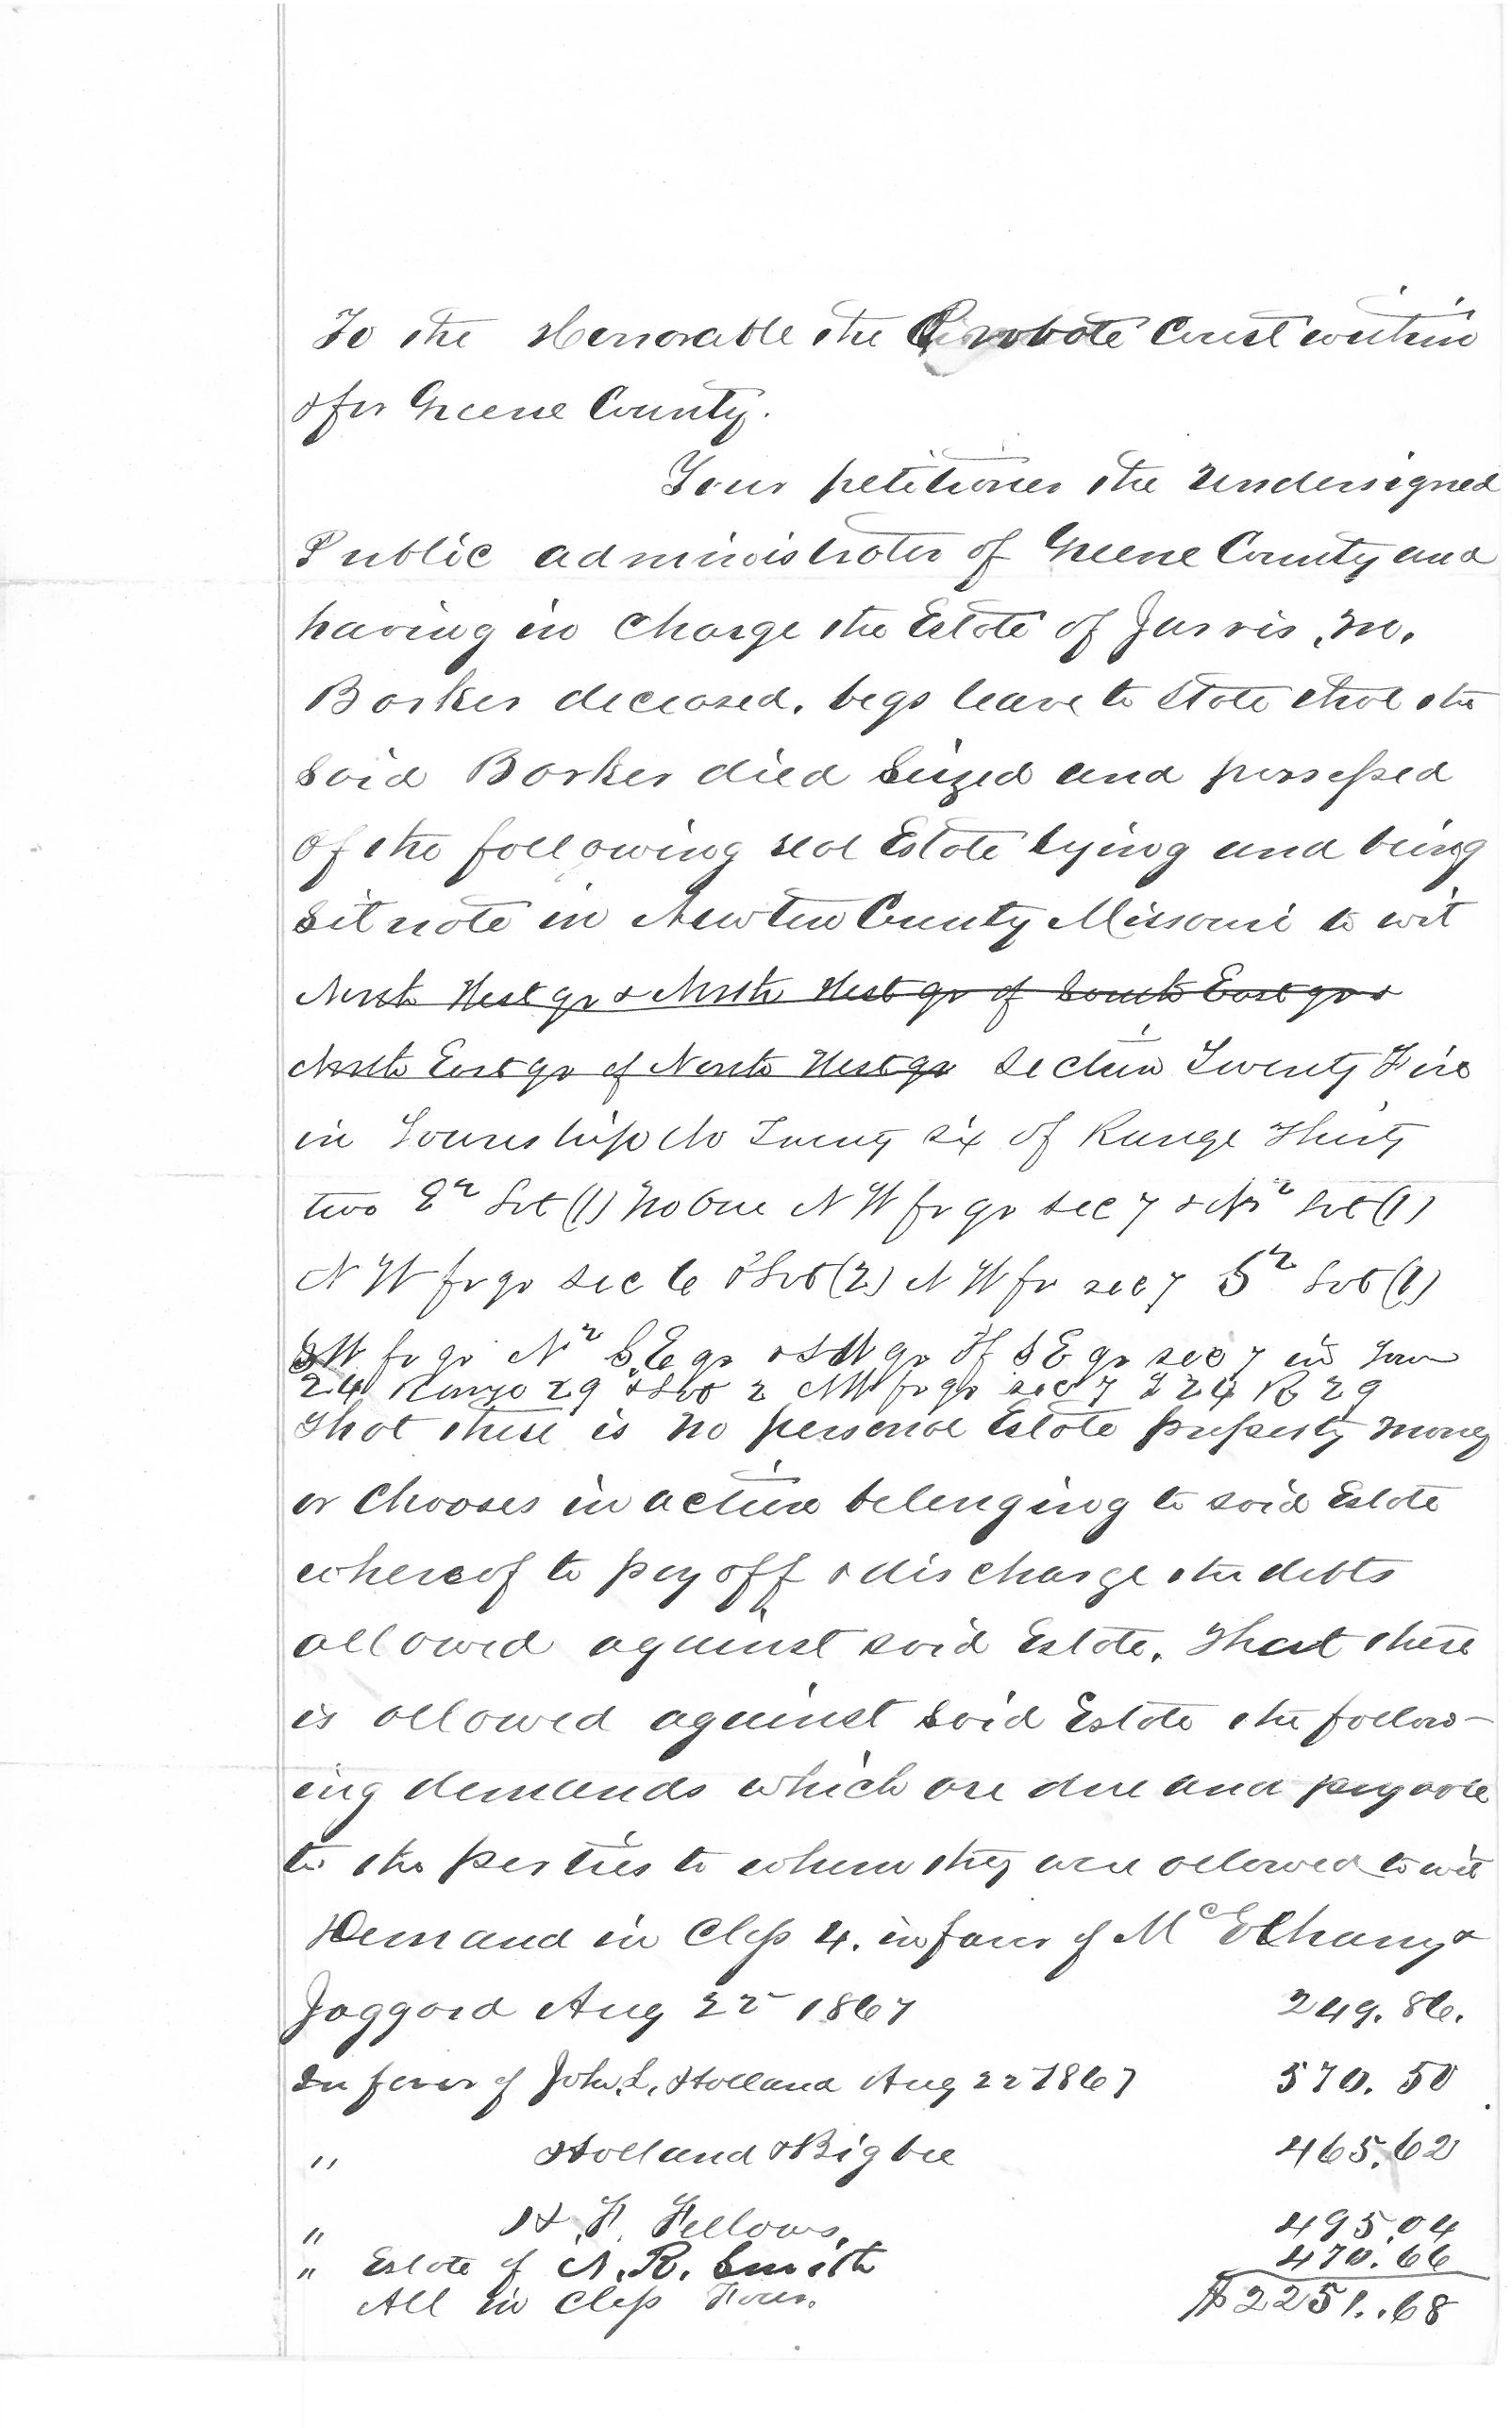 To the Honorable the Probate Court within
& for Greene County.
Your petitioner the undersigned
Public administrator of Greene County and
having in charge the Estate of Jarvis M.
Barker deceased. begs leave to state that the
said Barker died Seized and possessed
of the following real Estate lying and being
situate in Newton County Missouri to wit
North West qr & North West qr of South East qr &
North East qr of North West qr Section Twenty Five
in Township No Twenty six of Range Thirty
two E2 Lot (1) No One N W fr qr sec 7 & N2 Lot (1)
N W fr qr sec 6 & Lot (2) N W fr sec 7 S2 Lot (1)
SW fr qr N2 S.E qr & SW qr of S E qr sec 7 in Town
24 Range 29 & Lot 2 NW fr qr sec 7 T 24 R 29
That there is no personal Estate property money
or Chooses in action belonging to said Estate
whereof to pay off & discharge the debts
allowed against said Estate. That there
is allowed against said Estate the follow-
ing demands which are due and payable
to the parties to whom they were allowed to wit
Demand in Class 4. in favor of McElhany &
Jaggard Aug 22 1867 249.86.
In favor of John L. Holland Aug 22 1867 570.50
" Holland & Bigbee 465.62
" H. F. Fellows. 495.04
" Estate of N. R. Smith 470.66
All in Class Four. $2251..68